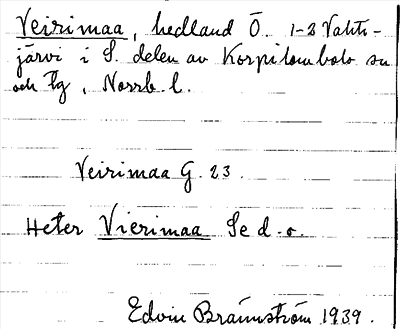 Veirimaa, hedland Ö. 1-2 Vahti-
järvi i S. delen av Korpilombolo sn
och tg, Norrb. l.
Veirimaa G. 23.
Heter Vierimaa Se d.o.
Edvin Brännström 1939.